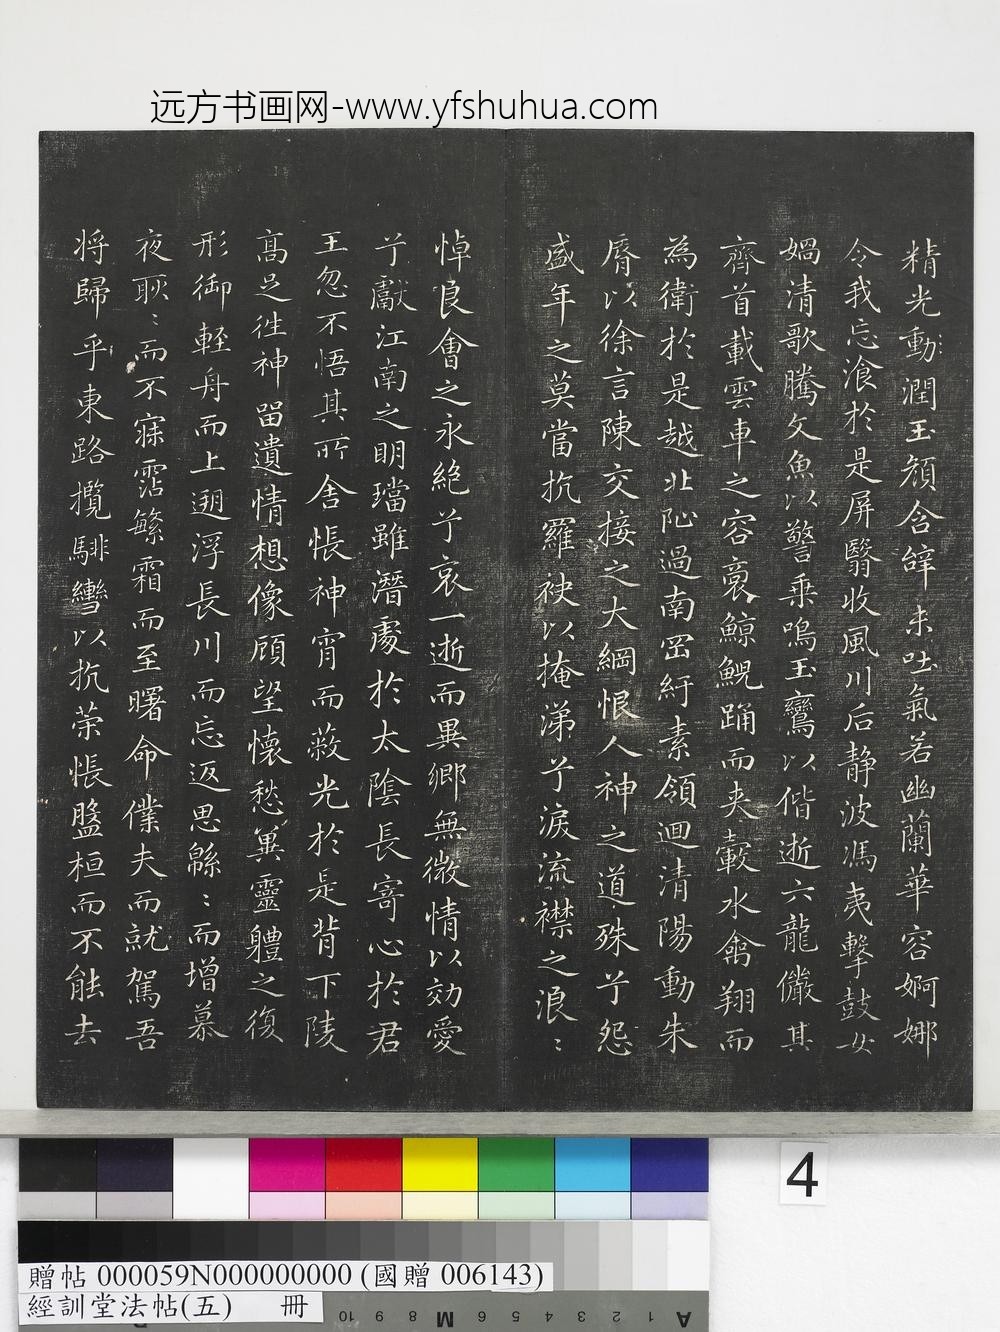 远方书画网-www.yfshuhua.com
精光動潤玉顔含辝未吐氣若幽蘭華容婀娜
令我忘湌於是屏翳收風川后静波馮夷擊鼓女
媧清歌騰文魚以警乗鳴玉鸞以偕逝六龍儼其
齊首載雲車之容裔鯨鯢踊而夹轂水禽翔而
為衛於是越北沚過南岡紆素領迴清陽動朱
脣以徐言陳交接之大綱恨人神之道殊兮怨
盛年之莫當抗羅袂以掩涕兮淚流襟之浪〻
悼良會之永絶兮哀一逝而異鄉無微情以効愛
兮獻江南之明璫雖潛處於太陰長寄心於君
王忽不悟其所舍悵神宵而蔽光於是背下陵
高足往神留遺情想像顧望懷愁兾靈軆之復
形御輕舟而上遡浮長川而忘返思緜〻而增慕
夜耿〻而不寐霑繁霜而至曙命僕夫而就駕吾
将歸乎東路攬騑轡以抗䇿悵盤桓而不能去
4
贈帖 000059N000000000 (國贈 006143)
經訓堂法帖(五) 冊
10 9 8 M 6 5 4 3 2 1 A